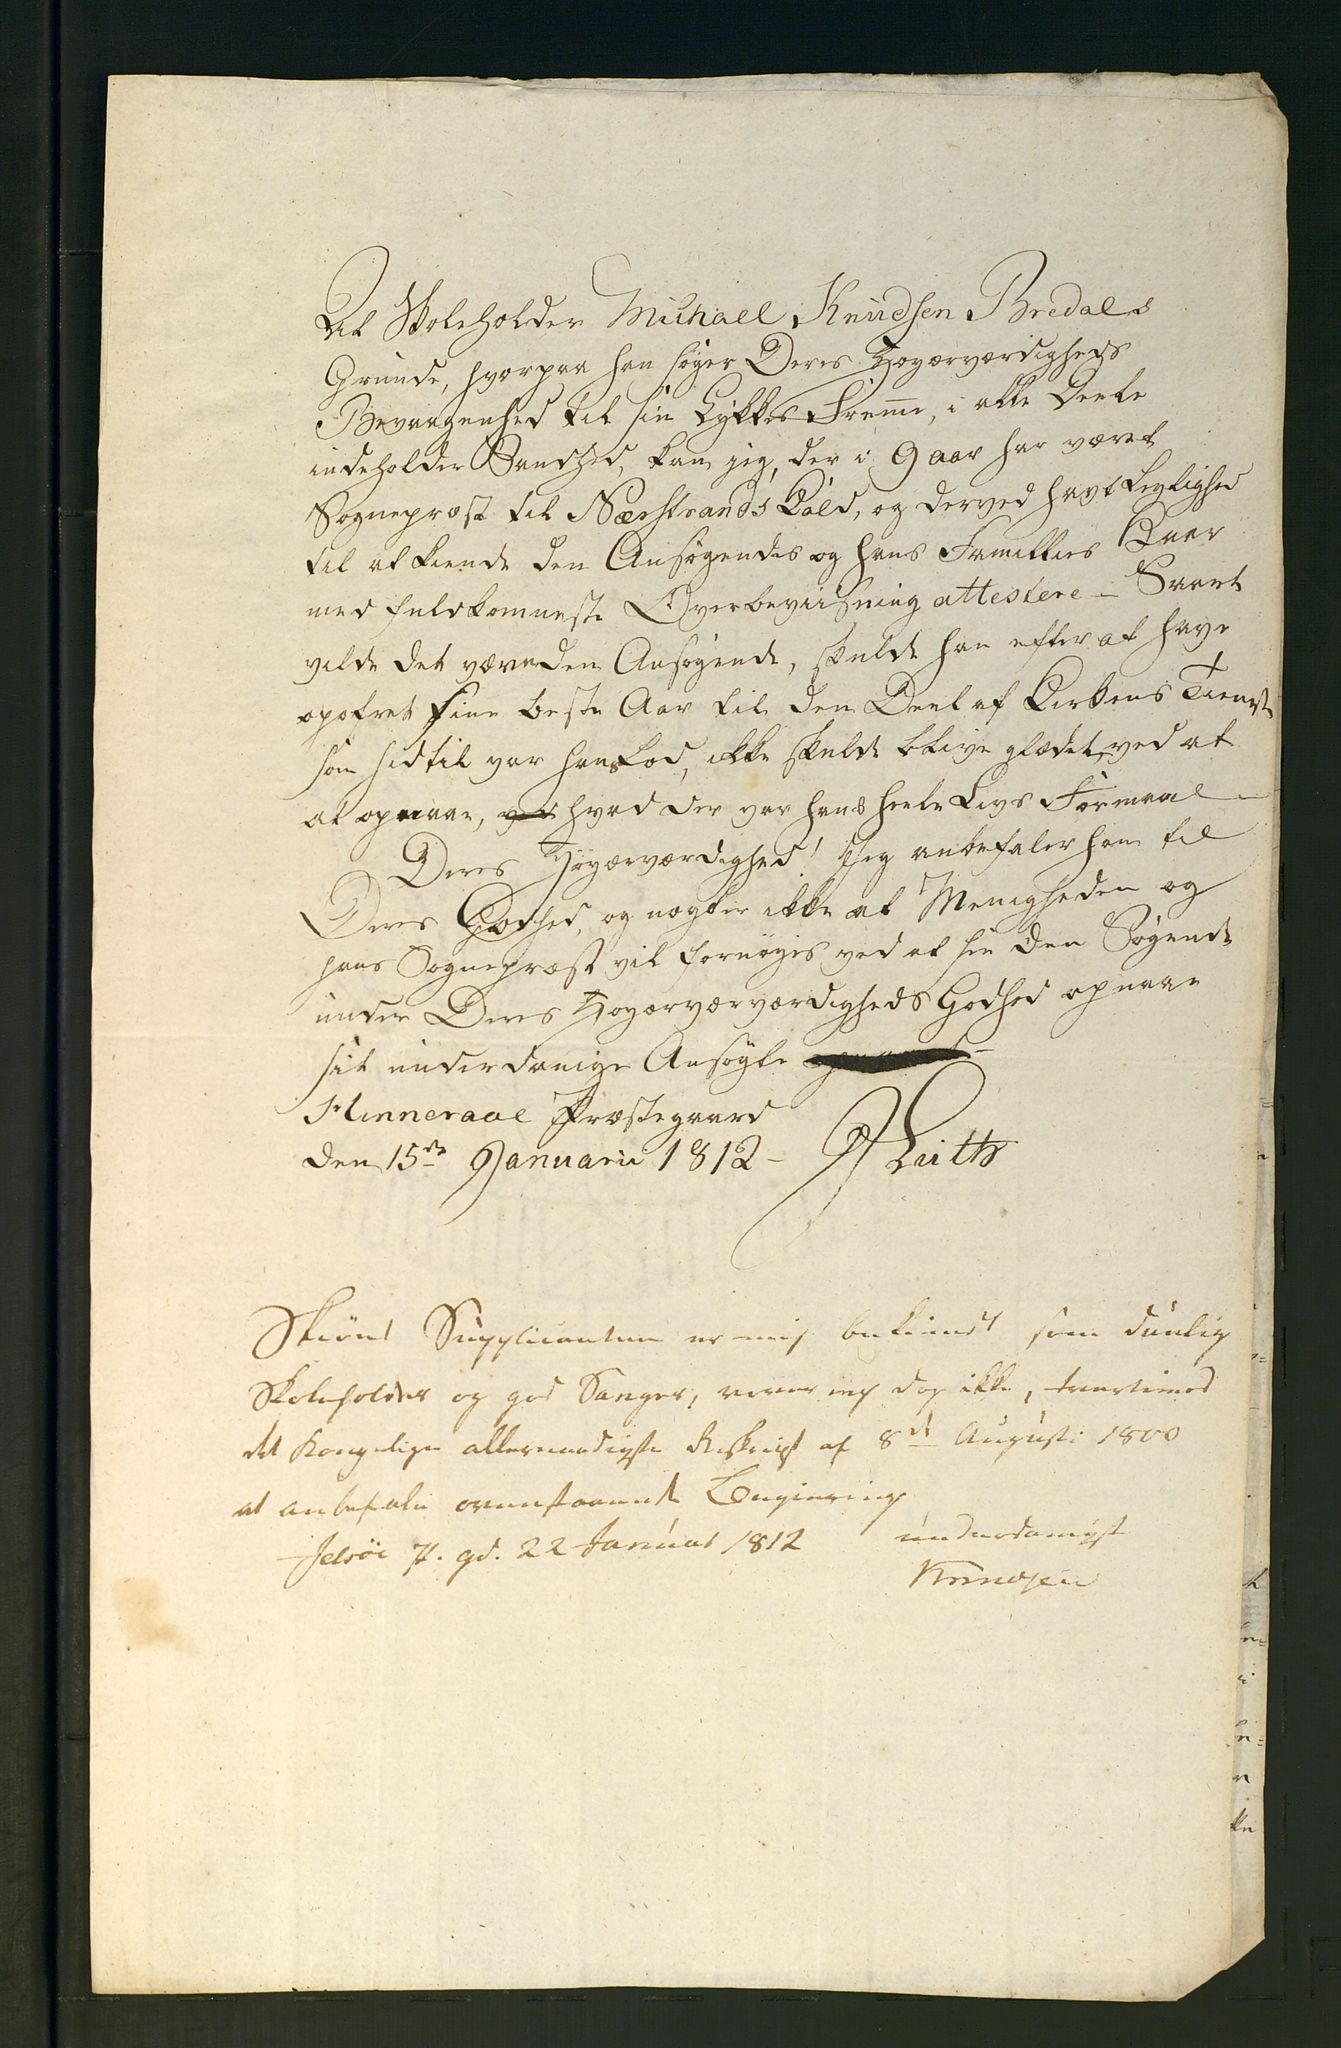 At Skoleholder Michael Knudsen Bredals
Grunde, hvorpaa han søger Deres Høyærværdigheds
Bevaagenhed til sin Lykkes Fremme, i alle Deele
indeholder Sandhed, kan jeg, der i 9 aar har været
Sognepræst til Nærstrands Kald, og derved havt Leylighed
til at kiende den Ansøgendes og hans Families Kaar
med fuldkomneste Overbeviisning attestere – Svart
vilde det være den Ansøgende, skulde han efter at have
opofret sine beste Aar til den Deel af Kirkens Tieneste
som hidtil var hans Lod, ikke skulde blive glædet ved at
at opnaae, ved hvad der var hans heele Livs Formaal –
Deres Høyærværdighed! Jeg anbefaler ham til
Deres Godhed, og negter ikke at Menigheden og
hans Sognepræst vil fornøyes ved at see den Søgende
under Deres Høyærværværdigheds Godhed opnaae
sit underdanige Ansøgte
Hinneraae Præstegaard
den 15de Januarii 1812 –
Skiønt Supplicanten er mig bekiendt som duelig
Skoleholder og god Sanger, vover jeg dog ikke, tvertimod
det Kongelige allernaadigste Reskript af 8de Augusti 1800
at anbefale ovenstaaende Begiering
Jelsøe P. gd. 22 Januar 1812 underdanigst
Knudsen